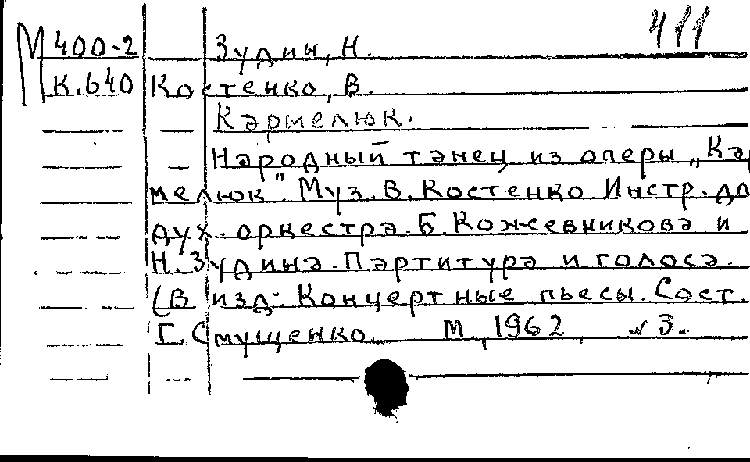 411
М 400-2 Зудин, Н.
К.640 Костенко, В.
Кармелюк.
Народный танец из оперы „Кар
мелюк". Муз. В. Костенко Инстр. дл
дух. оркестра. Б. Кожевникова и
Н. Зудина. Партитура и голоса.
(В изд: Концертные пьесы. Сост.
Г. Смущенко М, 1962, 3.